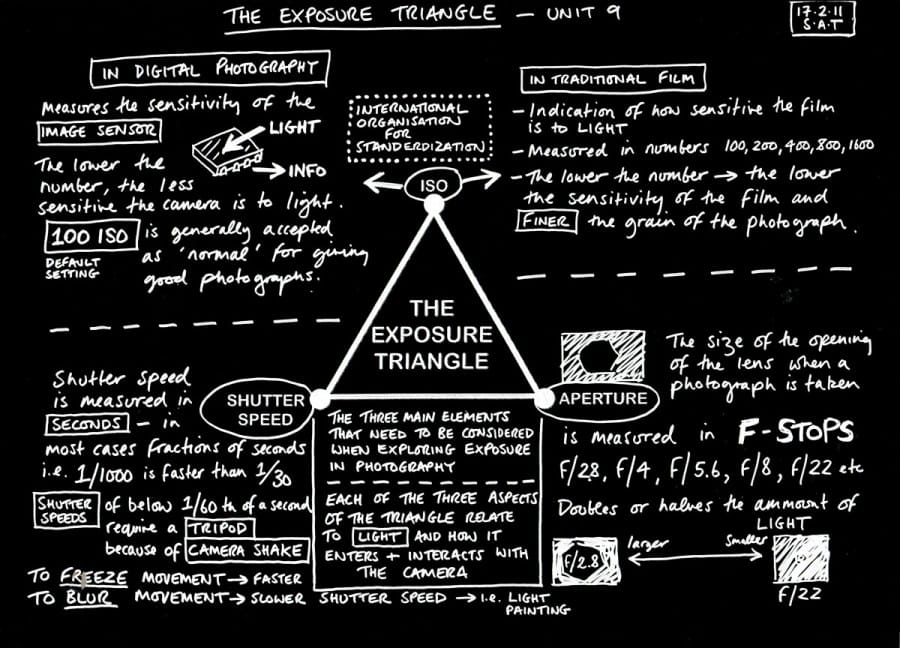 THE EXPOSURE TRIANGLE — UNIT 9
17.2.11
S.A.T
IN DIGITAL PHOTOGRAPHY
Measures the sensitivity of the
IMAGE SENSOR
LIGHT
INFO
The lower the
number, the less
sensitive the camera is to light.
100 ISO is generally accepted
DEFAULT
SETTING
as 'normal' for giving
good photographs.
INTERNATIONAL
ORGANISATION
FOR
STANDERDIZATION
ISO
IN TRADITIONAL FILM
- Indication of how sensitive the film
is to LIGHT
- Measured in numbers 100, 200, 400, 800, 1600
- The lower the number → the lower
the sensitivity of the film and
FINER the grain of the photograph.
THE
EXPOSURE
TRIANGLE
Shutter speed
is measured in
SECONDS - in
most cases fractions of seconds
i.e. 1/1000 is faster than 1/30
SHUTTER
SPEED
SHUTTER
SPEEDS
of below 1/60 th of a second
require a TRIPOD
because of CAMERA SHAKE
TO FREEZE MOVEMENT → FASTER
TO BLUR MOVEMENT → SLOWER SHUTTER SPEED → i.e. LIGHT
PAINTING
THE THREE MAIN ELEMENTS
THAT NEED TO BE CONSIDERED
WHEN EXPLORING EXPOSURE
IN PHOTOGRAPHY
EACH OF THE THREE ASPECTS
OF THE TRIANGLE RELATE
TO LIGHT AND HOW IT
ENTERS + INTERACTS WITH
THE CAMERA
APERTURE
The size of the opening
of the lens when a
photograph is taken
is measured in F-STOPS
F/2.8, F/4, F/5.6, F/8, F/22 etc
Doubles or halves the ammount of
LIGHT
larger
smaller
F/2.8
F/22